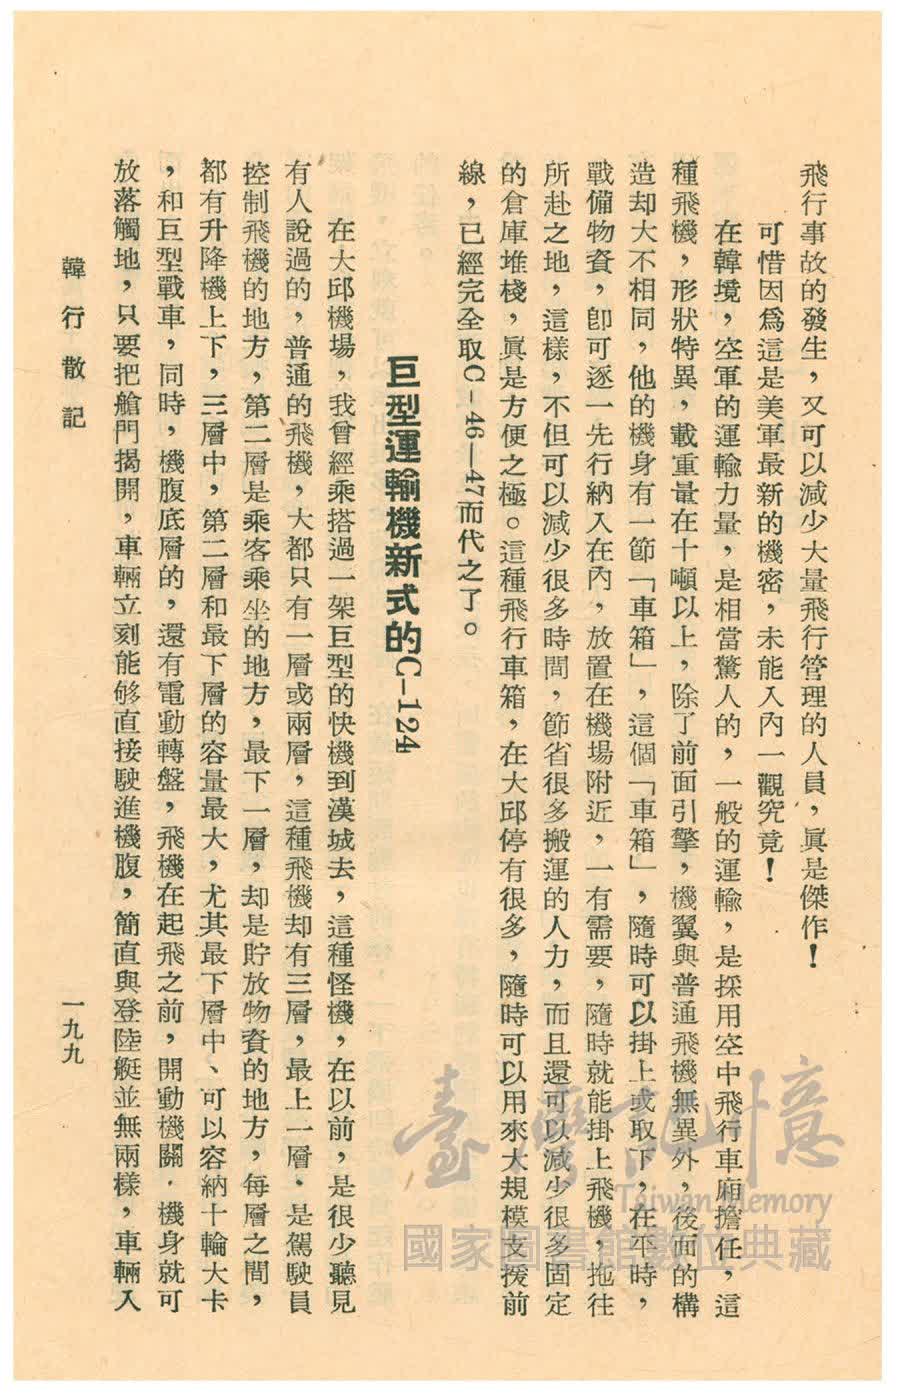 飛行事故的發生，又可以減少大量飛行管理的人員，眞是傑作！
可惜因爲這是美軍最新的機密，未能入內一觀究竟！
在韓境，空軍的運輸力量，是相當驚人的，一般的運輸，是採用空中飛行車廂擔任，這
種飛機，形狀特異，載重量在十噸以上，除了前面引擎，機翼與普通飛機無異外，後面的構
造却大不相同，他的機身有一節「車箱」，這個「車箱」，隨時可以掛上或取下，在平時，
戰備物資，卽可逐一先行納入在內，放置在機場附近，一有需要，隨時就能掛上飛機，拖往
所赴之地，這樣，不但可以減少很多時間，節省很多搬運的人力，而且還可以減少很多固定
的倉庫堆棧，眞是方便之極。這種飛行車箱，在大邱停有很多，隨時可以用來大規模支援前
線，已經完全取C－46—47而代之了。
巨型運輸機新式的C－124
在大邱機場，我曾經乘搭過一架巨型的快機到漢城去，這種怪機，在以前，是很少聽見
有人說過的，普通的飛機，大都只有一層或兩層，這種飛機却有三層，最上一層．是駕駛員
控制飛機的地方，第二層是乘客乘坐的地方，最下一層，却是貯放物資的地方，每層之間，
都有升降機上下，三層中，第二層和最下層的容量最大，尤其最下層中、可以容納十輪大卡
，和巨型戰車，同時，機腹底層的，還有電動轉盤，飛機在起飛之前，開動機關．機身就可
放落觸地，只要把艙門揭開，車輛立刻能够直接駛進機腹，簡直與登陸艇並無兩樣，車輛入
韓行散記
一九九
臺灣記憶
Taiwan Memory
國家圖書館數位典藏